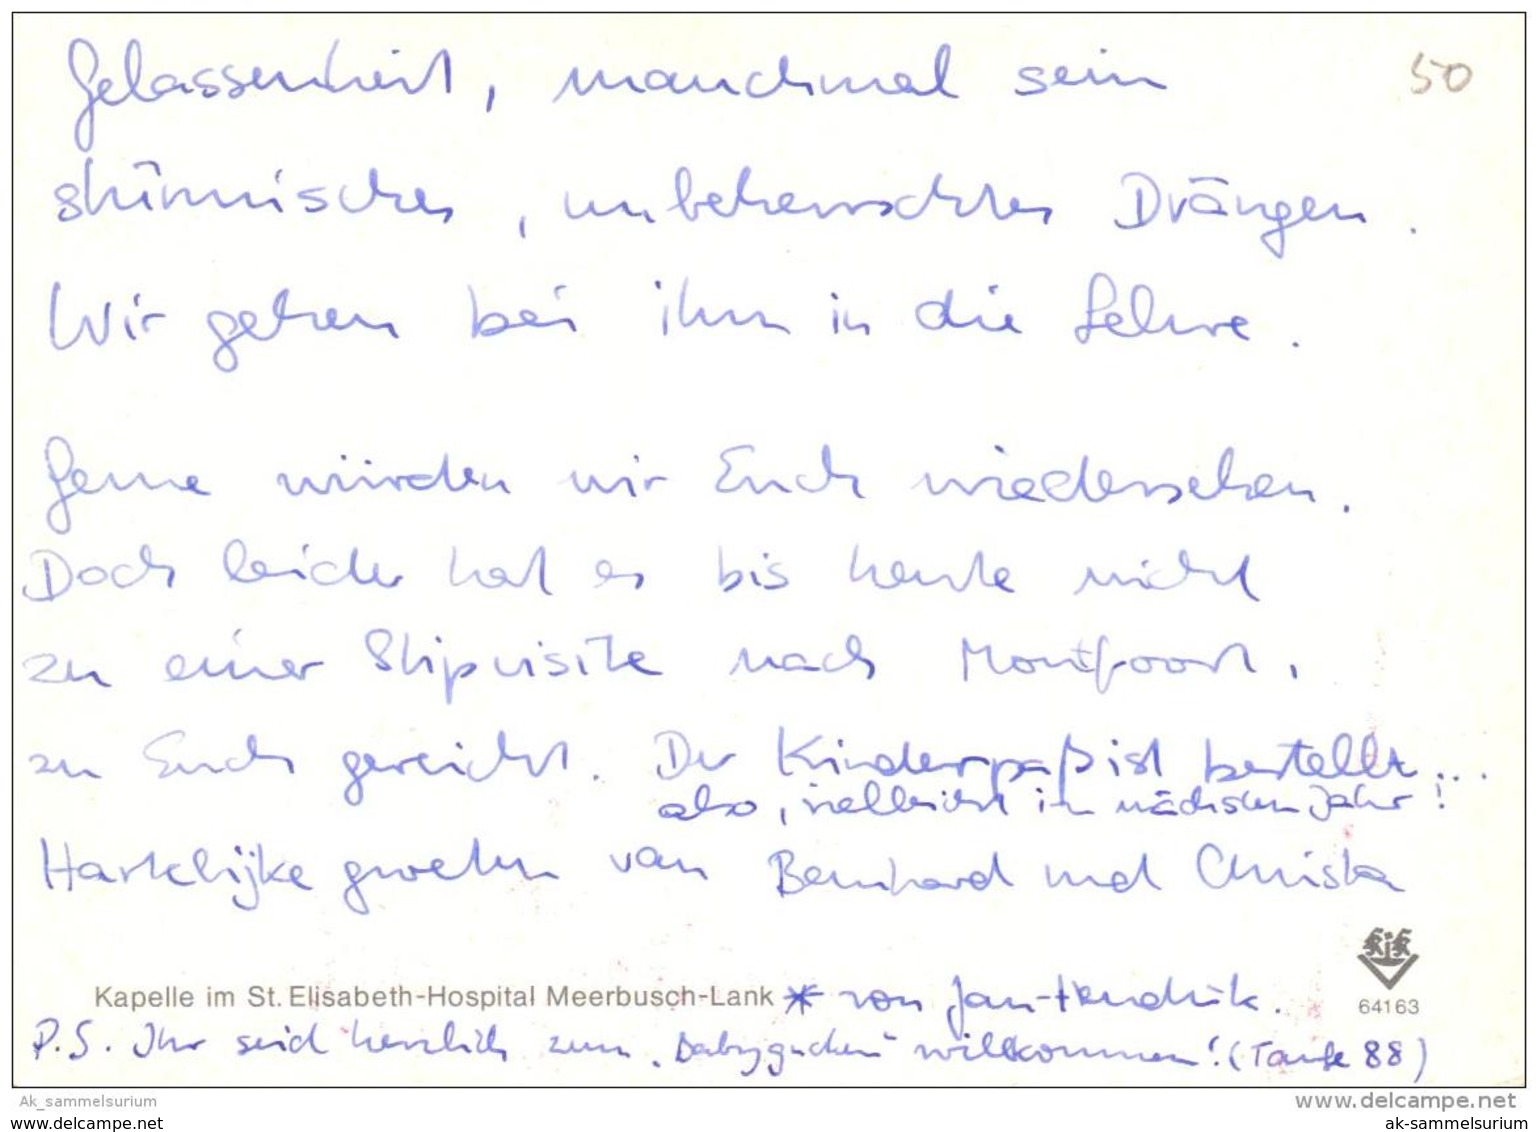 Gelassenheit, manchmal sein
50
stürmisches, unbeherrschtes Drängen.
Wir gehen bei ihm in die Lehre.
Gerne würden wir Euch wiedersehen.
Doch leider hat es bis heute nicht
zu einer Stipvisite nach Montfoort,
zu Euch gereicht. Der Kinderpaß ist bestellt...
also, vielleicht im nächsten Jahr!
Hartelijke groeten van Bernhard und Christa
Kapelle im St. Elisabeth-Hospital Meerbusch-Lank * von Jan-Hendrik.
KiK
64163
P.S. Ihr seid herzlich zum "Babygucken" willkommen! (Taufe 88)
Ak_sammelsurium
www.delcampe.net
www.delcampe.net
ak-sammelsurium